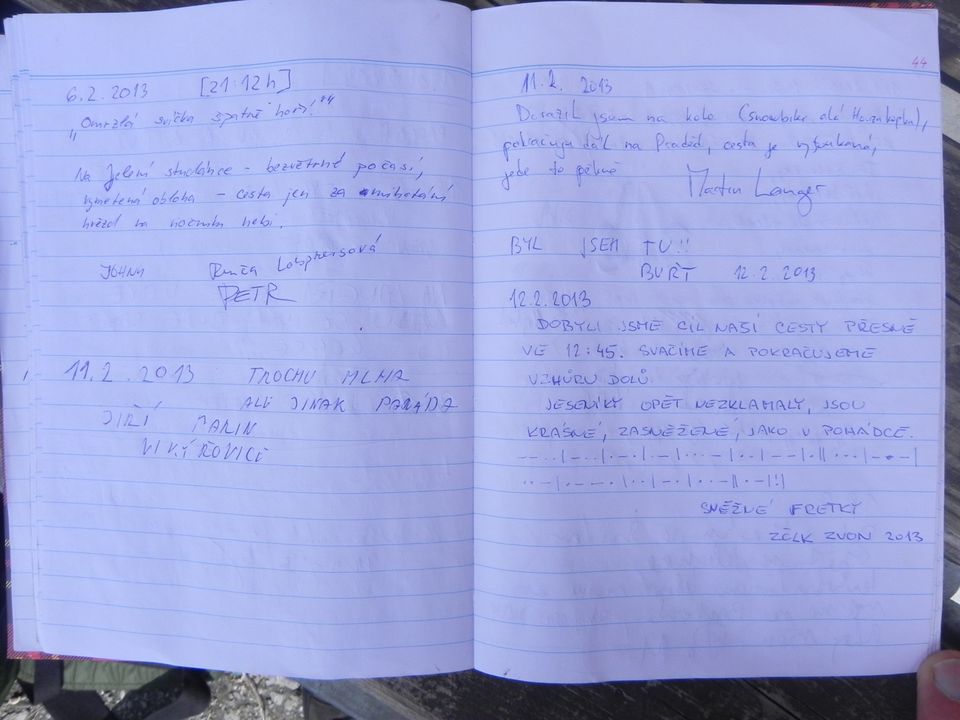 6.2.2013 [21:12h]
„Omrzlá svíčka špatně hoří!“
Na Jelení studánce - bezvětrné počasí,
vymetená obloha - cesta jen za mihotání
hvězd na nočním nebi.
JOHNY Renča
PETR
11.2.2013 TROCHU MLHA
ALE JINAK PARÁDA
JIŘÍ MARIN
VIKÝŘOVICE
44
11.2. 2013
Dorazil jsem na kole (snowbike alá Honzakopka),
pokračuju dál na Praděd, cesta je vyfoukaná,
jede to pěkně
Martin Langer
BYL JSEM TU!!
BUŘT 12.2.2013
12.2.2013
DOBYLI JSME CÍL NAŠÍ CESTY PŘESNĚ
VE 12:45. SVAČÍME A POKRAČUJEME
VZHŮRU DOLŮ.
JESENÍKY OPĚT NEZKLAMALY, JSOU
KRÁSNÉ, ZASNĚŽENÉ, JAKO V POHÁDCE.
SNĚŽNÉ FRETKY
ZÉLK ZVON 2013